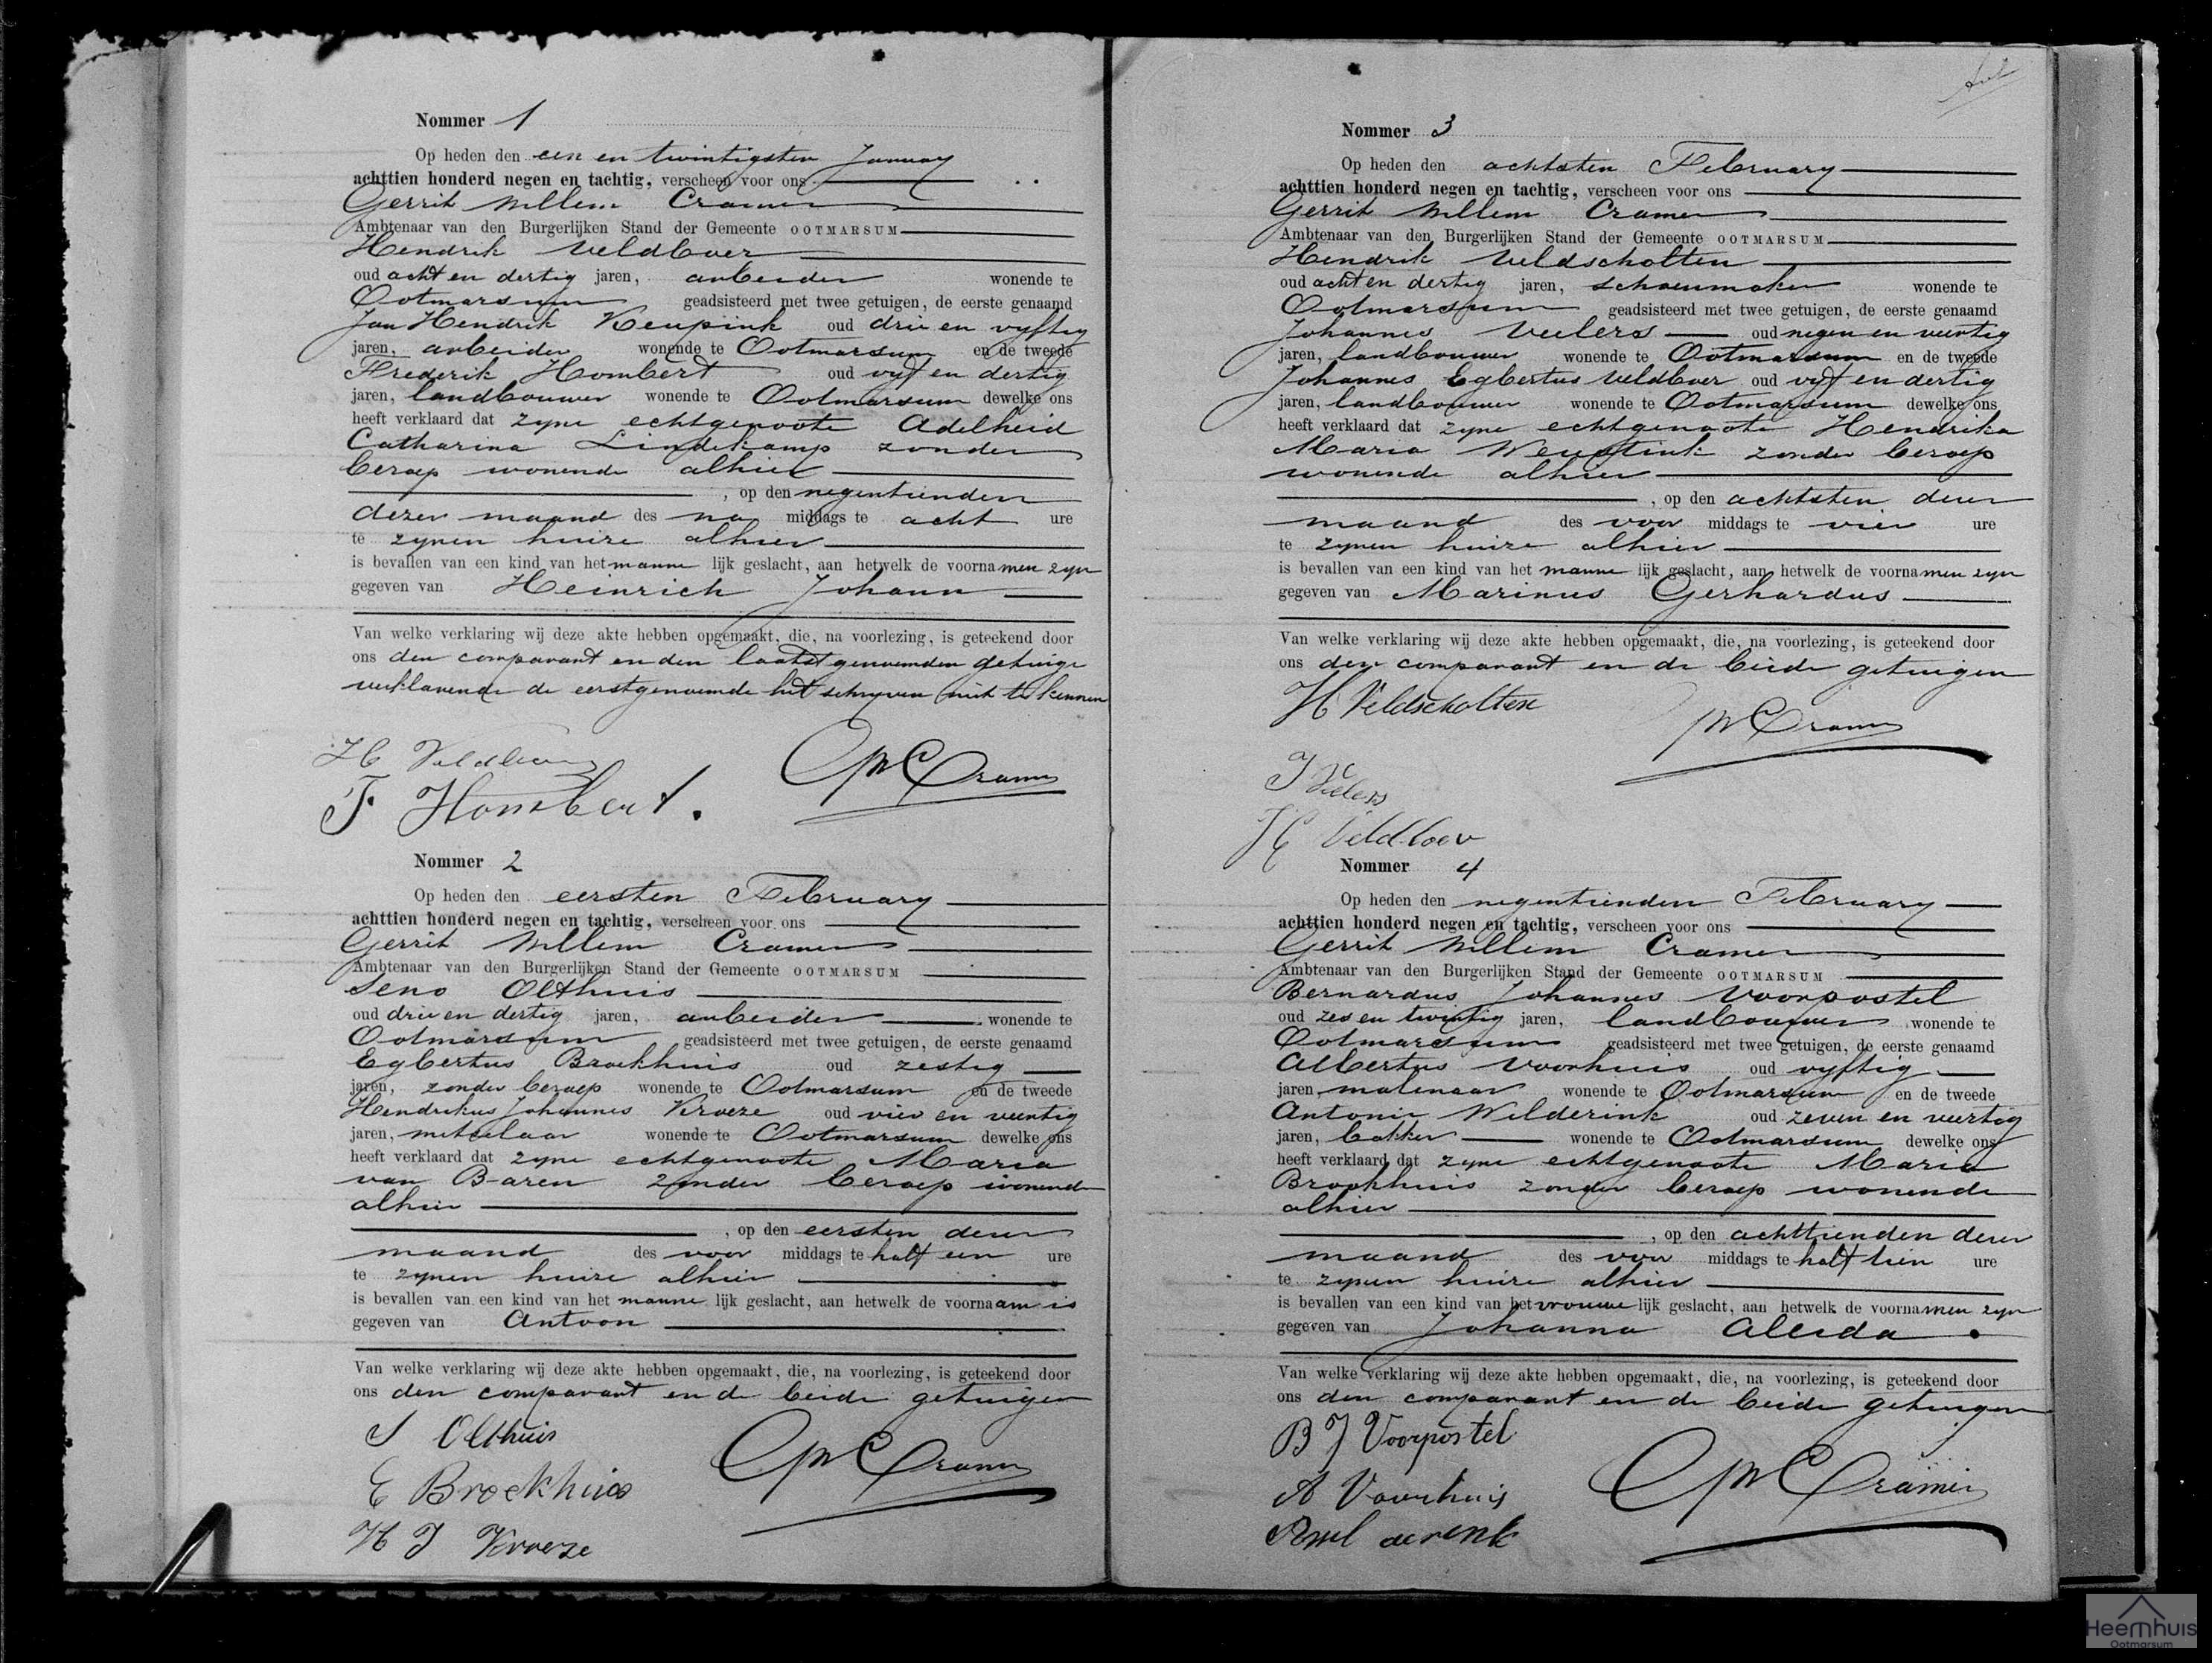 Nommer 1
Op heden den een en twintigsten January
achttien honderd negen en tachtig, verscheen voor ons
Gerrit Willem Cramer
Ambtenaar van den Burgerlijken Stand der Gemeente OOTMARSUM
Hendrik Veldboer
oud acht en dertig jaren, arbeider wonende te
Ootmarsum geadsisteerd met twee getuigen, de eerste genaamd
Jan Hendrik Keupink oud drie en vyftig
jaren, arbeider wonende te Ootmarsum en de tweede
Frederik Hombert oud vyf en dertig
jaren, landbouwer wonende te Ootmarsum dewelke ons
heeft verklaard dat zyne echtgenoote Adelheid
Catharina Lindekamp zonder
beroep wonende alhier
, op den negentienden
dezer maand des na middags te acht ure
te zynen huize alhier
is bevallen van een kind van het manne lijk geslacht, aan hetwelk de voorna men zyn
gegeven van Heinrich Johann
Van welke verklaring wij deze akte hebben opgemaakt, die, na voorlezing, is geteekend door
ons den comparant en den laatstgenoemden getuige
verklarende de eerstgenoemde het schryven niet te kennen
H Veldboer
GW Cramer
F Hombert.
Nommer 2
Op heden den eersten February
achttien honderd negen en tachtig, verscheen voor ons
Gerrit Willem Cramer
Ambtenaar van den Burgerlijken Stand der Gemeente OOTMARSUM
Seno Olthuis
oud drie en dertig jaren, arbeider wonende te
Ootmarsum geadsisteerd met twee getuigen, de eerste genaamd
Egbertus Broekhuis oud zestig
jaren, zonder beroep wonende te Ootmarsum en de tweede
Hendrikus Johannes Kroeze oud vier en veertig
jaren, metselaar wonende te Ootmarsum dewelke ons
heeft verklaard dat zyne echtgenoote Maria
van Baren zonder beroep wonende
alhier
, op den eersten dezer
maand des voor middags te half een ure
te zynen huize alhier
is bevallen van een kind van het manne lijk geslacht, aan hetwelk de voorna am is
gegeven van Antoon
Van welke verklaring wij deze akte hebben opgemaakt, die, na voorlezing, is geteekend door
ons den comparant en de beide getuigen
S Olthuis
GW Cramer
E Broekhuis
H J Kroeze
Nommer 3
Op heden den achtsten February
achttien honderd negen en tachtig, verscheen voor ons
Gerrit Willem Cramer
Ambtenaar van den Burgerlijken Stand der Gemeente OOTMARSUM
Hendrik Veldscholten
oud acht en dertig jaren, schoenmaker wonende te
Ootmarsum geadsisteerd met twee getuigen, de eerste genaamd
Johannes Veelers oud negen en veertig
jaren, landbouwer wonende te Ootmarsum en de tweede
Johannes Egbertus Veldboer oud vyf en dertig
jaren, landbouwer wonende te Ootmarsum dewelke ons
heeft verklaard dat zyne echtgenoote Hendrika
Maria zonder beroep
wonende alhier
, op den achtsten dezer
maand des voor middags te vier ure
te zynen huize alhier
is bevallen van een kind van het manne lijk geslacht, aan hetwelk de voorna men zyn
gegeven van Marinus Gerhardus
Van welke verklaring wij deze akte hebben opgemaakt, die, na voorlezing, is geteekend door
ons den comparant en de beide getuigen
H Veldscholten
GW Cramer
J Veelers
Veldboer
Nommer 4
Op heden den negentienden February
achttien honderd negen en tachtig, verscheen voor ons
Gerrit Willem Cramer
Ambtenaar van den Burgerlijken Stand der Gemeente OOTMARSUM
Bernardus Johannes Voorpostel
oud zes en twintig jaren, landbouwer wonende te
Ootmarsum geadsisteerd met twee getuigen, de eerste genaamd
Albertus Voorhuis oud vyftig
jaren, molenaar wonende te Ootmarsum en de tweede
Antonie Wilderink oud zeven en veertig
jaren, bakker wonende te Ootmarsum dewelke ons
heeft verklaard dat zyne echtgenoote Maria
Broekhuis zonder beroep wonende
alhier
, op den achttienden dezer
maand des voor middags te half tien ure
te zynen huize alhier
is bevallen van een kind van het vrouwe lijk geslacht, aan hetwelk de voorna men zyn
gegeven van Johanna Aleida
Van welke verklaring wij deze akte hebben opgemaakt, die, na voorlezing, is geteekend door
ons den comparant en de beide getuigen
B J Voorpostel
GW Cramer
A Voorhuis
Heemhuis
Ootmarsum